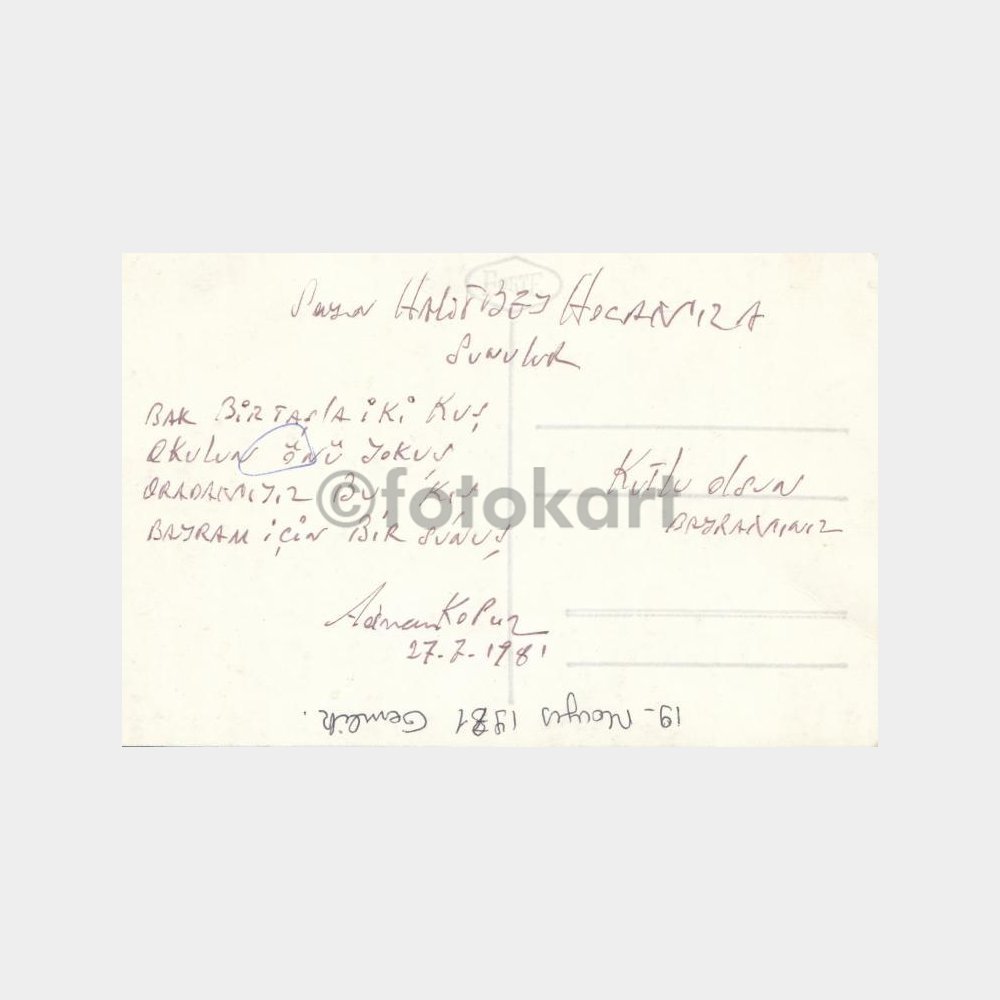 FORTE
Sayın HALİT BEY HOCAMIZA
Sunulur
BAK BİR TAŞLA İKİ KUŞ
OKULUN ÖNÜ YOKUŞ
ORADAMIYIZ BU KIŞ
BAYRAM İÇİN BİR SUNUŞ
KUTLU OLSUN
BAYRAMINIZ
©fotokart
Adnan KOPUZ
27.7.1981
19- Mayıs 1981 Gemlik.